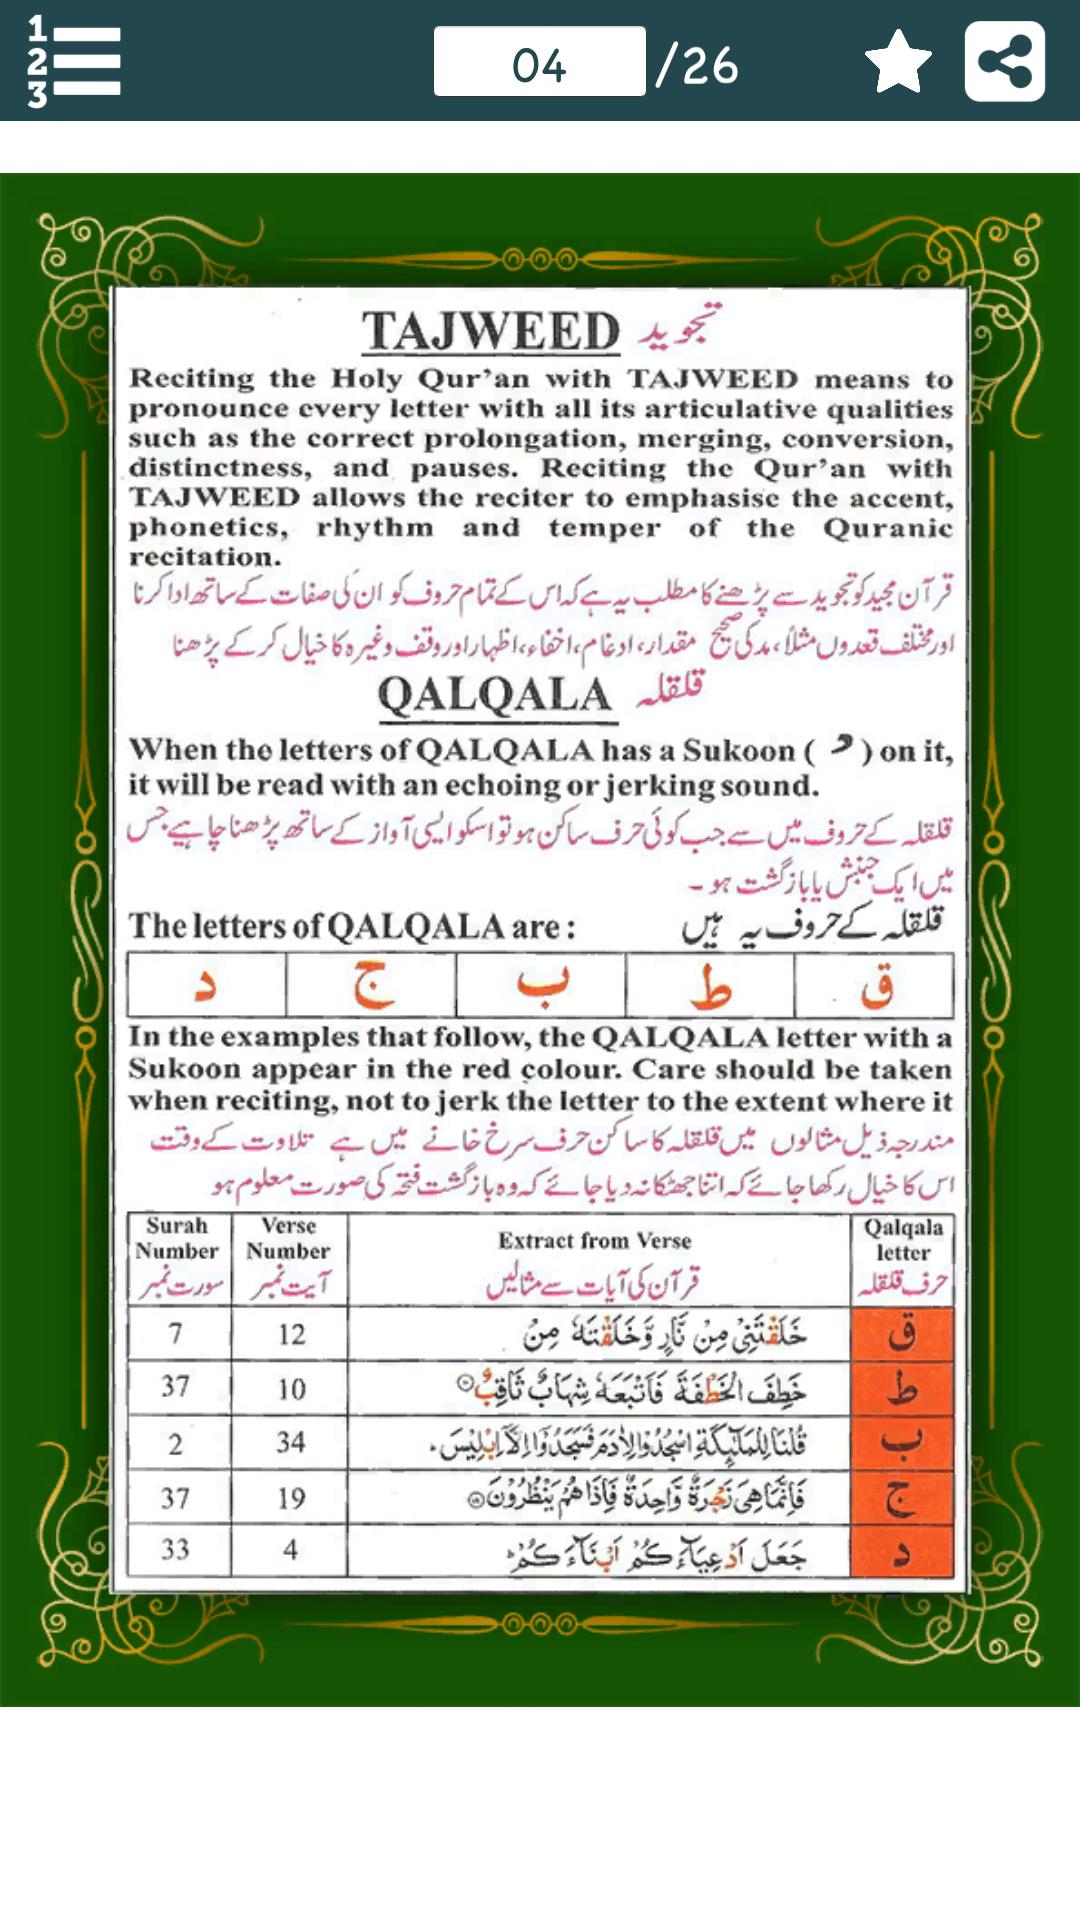 1
2
3
04 /26
TAJWEED تجوید
Reciting the Holy Qur’an with TAJWEED means to
pronounce every letter with all its articulative qualities
such as the correct prolongation, merging, conversion,
distinctness, and pauses. Reciting the Qur’an with
TAJWEED allows the reciter to emphasise the accent,
phonetics, rhythm and temper of the Quranic
recitation.
قرآن مجید کو تجوید سے پڑھنے کا مطلب یہ ہے کہ اس کے تمام حروف کو ان کی صفات کے ساتھ ادا کرنا
اور مختلف قعدوں مثلاً، مد کی صحیح مقدار، ادغام، اخفاء، اظہار اور وقف وغیرہ کا خیال کر کے پڑھنا
QALQALA قلقلہ
When the letters of QALQALA has a Sukoon ( ) on it,
it will be read with an echoing or jerking sound.
قلقلہ کے حروف میں سے جب کوئی حرف ساکن ہو تو اسکو ایسی آواز کے ساتھ پڑھنا چاہیے جس
میں ایک جنبش یا بازگشت ہو ۔
The letters of QALQALA are : قلقلہ کے حروف یہ ہیں
ق ط ب ج د
In the examples that follow, the QALQALA letter with a
Sukoon appear in the red colour. Care should be taken
when reciting, not to jerk the letter to the extent where it
مندرجہ ذیل مثالوں میں قلقلہ کا ساکن حرف سرخ خانے میں ہے تلاوت کے وقت
اس کا خیال رکھا جائے کہ اتنا جھٹکا نہ دیا جائے کہ وہ بازگشت فتحہ کی صورت معلوم ہو
Surah Number سورت نمبر Verse Number آیت نمبر Extract from Verse قرآن کی آیات سے مثالیں Qalqala letter حرف قلقلہ
7 12 خَلَقْتَنِیْ مِنْ نَّارٍ وَّخَلَقْتَهٗ مِنْ ق
37 10 خَطِفَ الْخَطْفَةَ فَاَتْبَعَهٗ شِهَابٌ ثَاقِبٌ ط
2 34 قُلْنَا لِلْمَلٰٓئِكَةِ اسْجُدُوْا لِاٰدَمَ فَسَجَدُوْۤا اِلَّاۤ اِبْلِیْسَ ب
37 19 فَاِنَّمَا هِیَ زَجْرَةٌ وَّاحِدَةٌ فَاِذَا هُمْ یَنْظُرُوْنَ ج
33 4 جَعَلَ اَدْعِیَآءَكُمْ اَبْنَآءَكُمْ د